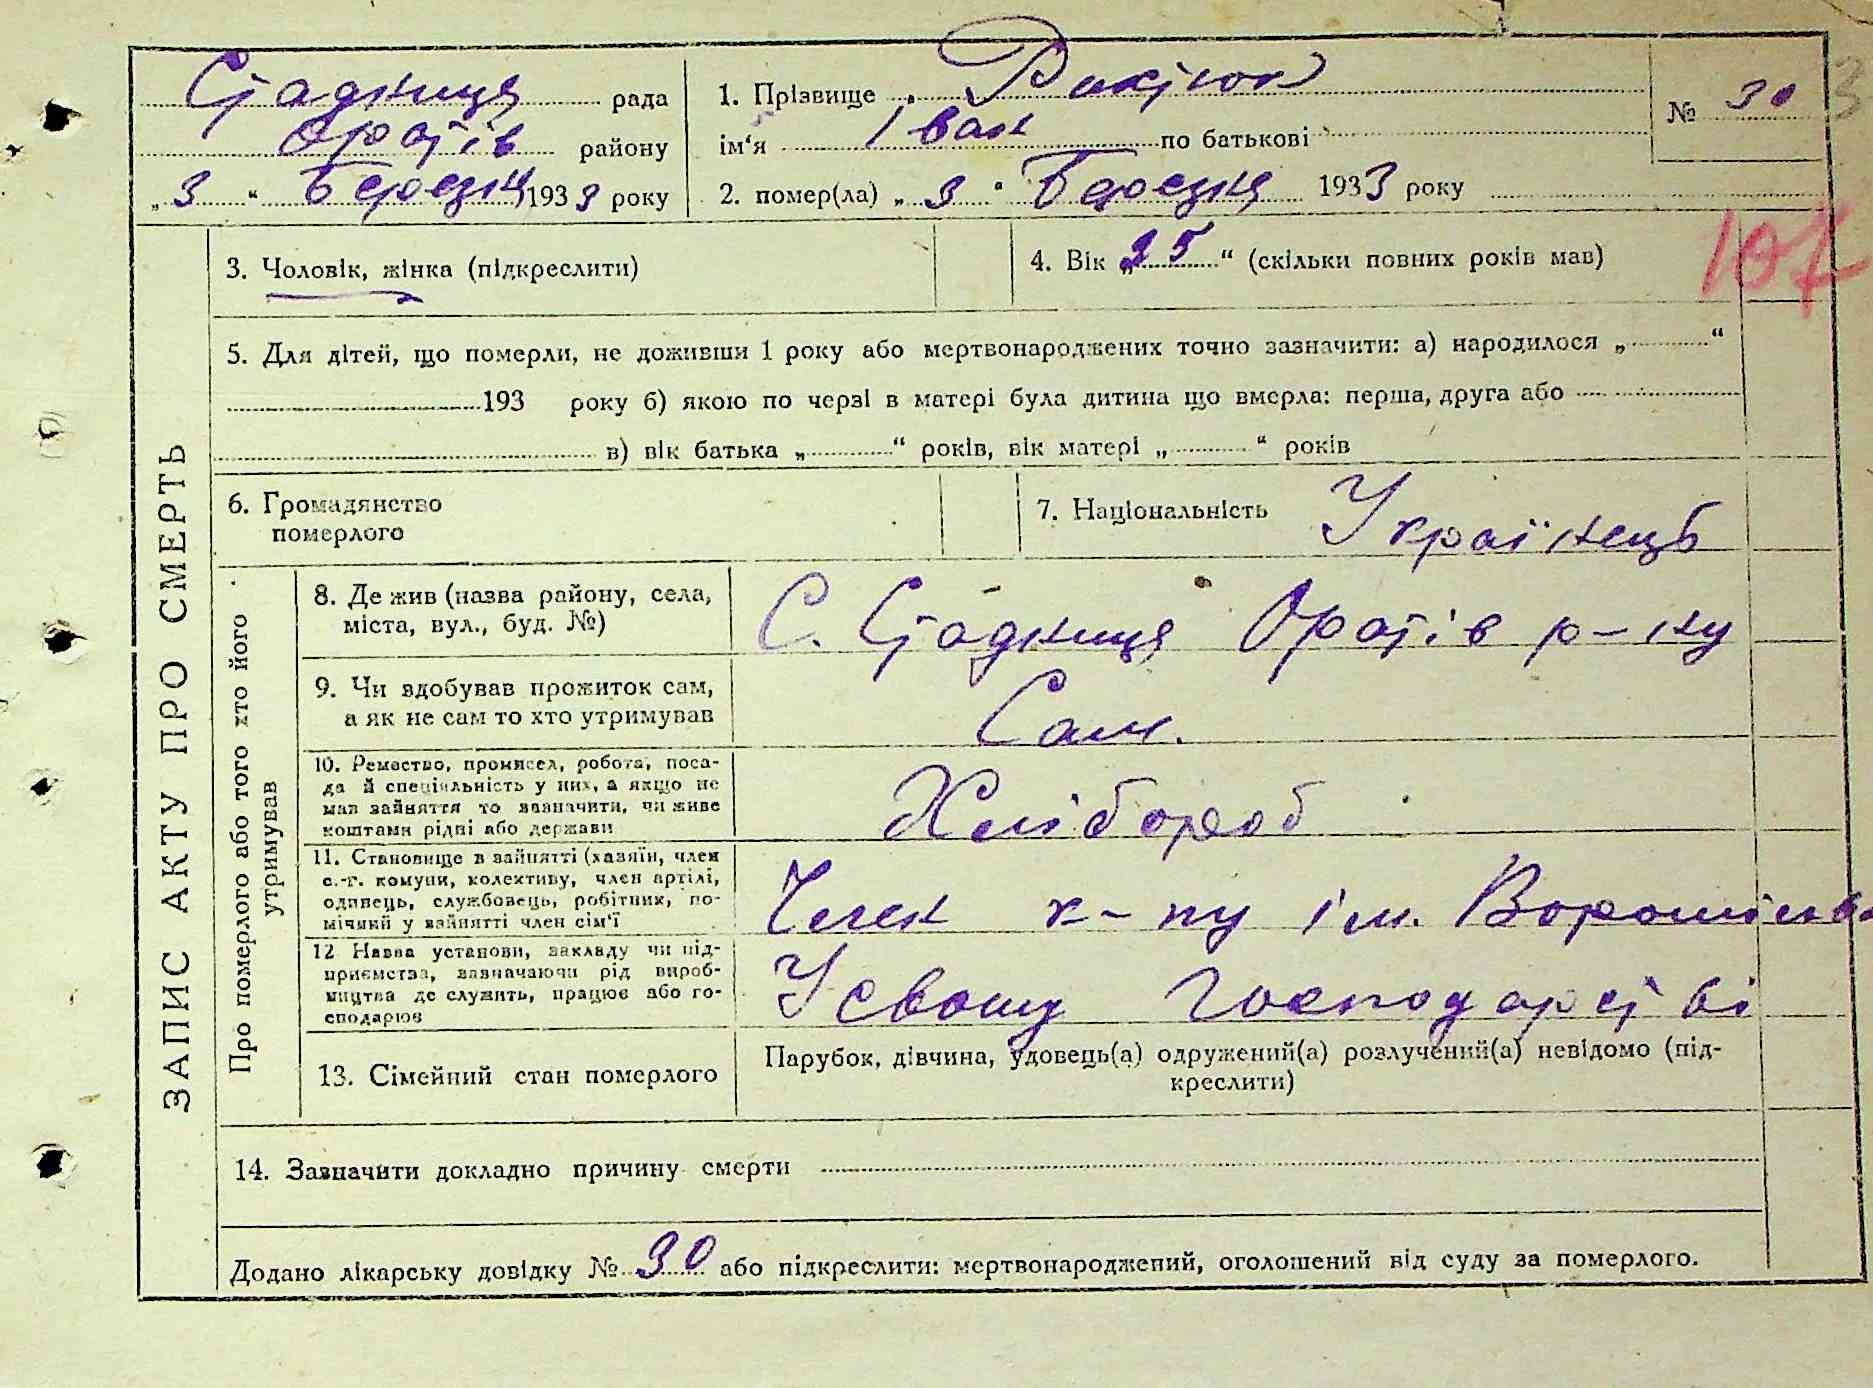 Стадниця рада
Оратів району
„ 3 “ Березня 1933 року
1. Прізвище Ракітюк
ім‘я Іван по батькові
2. помер(ла) „ 3 “ Березня 1933 року
№ 30
3. Чоловік, жінка (підкреслити)
4. Вік „ 35 “ (скільки повних років мав)
107
5. Для дітей, що померли, не доживши 1 року або мертвонароджених точно зазначити: а) народилося „ “
193 року б) якою по черзі в матері була дитина що вмерла: перша, друга або
в) вік батька „ “ років, вік матері „ “ років
6. Громадянство
померлого
7. Національність Українець
ЗАПИС АКТУ ПРО СМЕРТЬ
Про померлого або того хто його
утримував
8. Де жив (назва району, села,
міста, вул., буд. №)
С. Стадниця Оратів р-ну
9. Чи вдобував прожиток сам,
а як не сам то хто утримував
Сам.
10. Ремество, промисел, робота, поса-
да й спеціяльність у них, а якщо не
мав зайняття то зазначити, чи живе
коштами рідні або держави
Хлібороб
11. Становище в зайнятті (хазяїн, член
с.-г. комуни, колективу, член артілі,
одинець, службовець, робітник, по-
мічний у зайнятті член сім‘ї
Член к-пу ім. Ворошілова
12 Назва установи, закладу чи під-
приємства, зазначаючи рід вироб-
ництва де служить, працює або го-
сподарює
У свому господарстві
13. Сімейний стан померлого
Парубок, дівчина, удовець(а) одружений(а) розлучений(а) невідомо (під-
креслити)
14. Зазначити докладно причину смерти
Додано лікарську довідку № 30 або підкреслити: мертвонароджений, оголошений від суду за померлого.